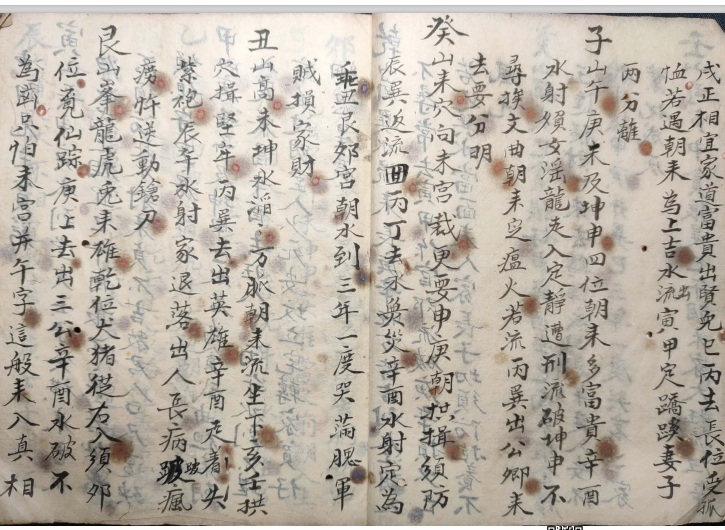 戌正相宜家道富貴出賢免巳丙去長位孤
恤若遇朝来為上吉水流出寅甲定蹻蹊妻子
兩分離
子山午庚未及坤申四位朝来多富貴辛酉
水射須女淫龍走入定靜遭刑流破坤申不
尋挨文曲朝来定瘟火若流丙巽出公卿来
去要分明
癸山来穴向未宮裁更要申庚朝拱揖須防
辰巽返流囬丙丁去水災辛酉水射定為
乖丑艮卯宮朝水到三年一度哭滿腮軍
賊損家財
丑山高未坤水滔万脈朝来流生下亥壬拱
穴揖堅牢丙巽去出英雄辛酉走着失
紫袍辰午水射家退落出人長病跛瘋
癆忤送動鎗刀
艮山峯龍虎兎来雄乾位犬猪從右入須卯
位覓仙踪庚上去出三公辛酉水破不
為凶只怕未宮并午字這般来入真相